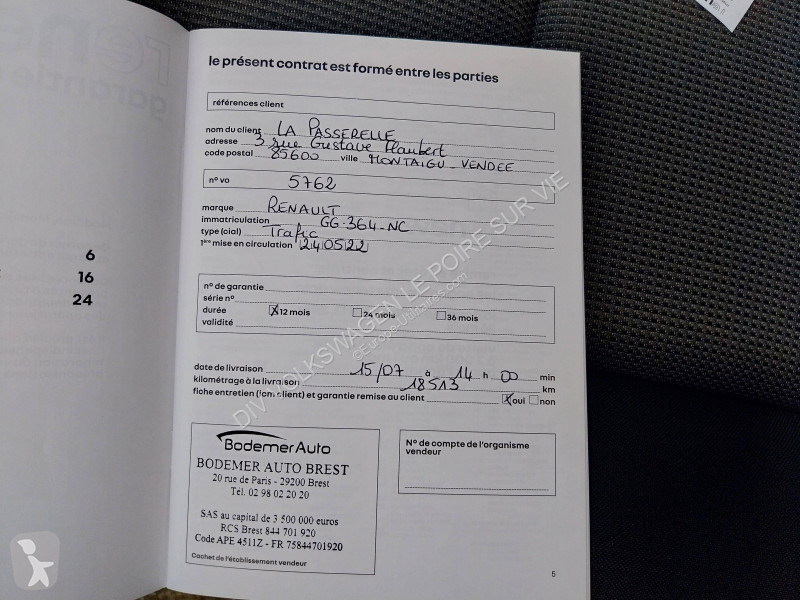 reno
garantie
6
16
24
le présent contrat est formé entre les parties
références client
nom du client LA PASSERELLE
adresse 3 rue Gustave Flaubert
code postal 85600 ville MONTAIGU-VENDEE
n° vo 5762
marque RENAULT
immatriculation GG-364-NC
type (cial) Trafic
1ère mise en circulation 240522
n° de garantie
série n°
durée X 12 mois 24 mois 36 mois
validité
date de livraison 15/07 à 14 h 00 min
kilométrage à la livraison 18513 km
fiche entretien (1 client) et garantie remise au client X oui non
BodemerAuto
BODEMER AUTO BREST
20 rue de Paris - 29200 Brest
Tél. 02 98 02 20 20
SAS au capital de 3 500 000 euros
RCS Brest 844 701 920
Code APE 4511Z - FR 75844701920
Cachet de l'établissement vendeur
N° de compte de l'organisme
vendeur
5
DIV VOLKSWAGEN LE POIRE SUR VIE
©Europe-Utilitaires.com